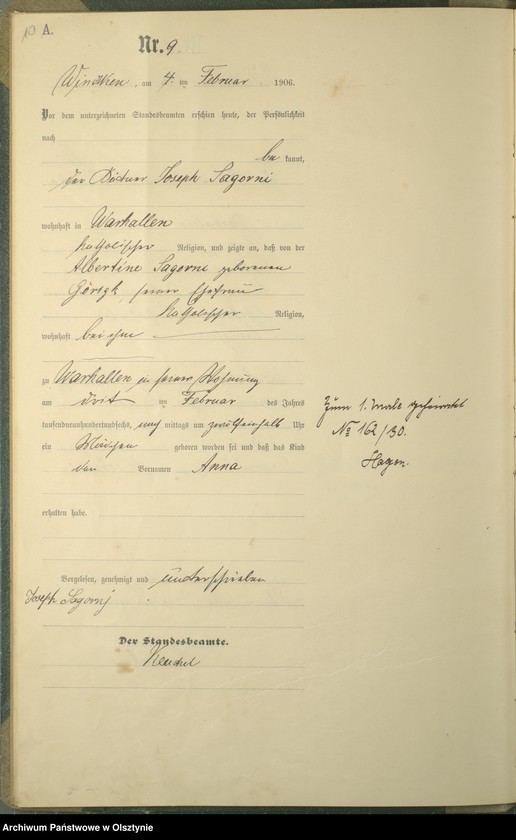 10 A.
Nr. 9
am 4. ten Februar 1906.
Vor dem unterzeichneten Standesbeamten erschien heute, der Persönlichkeit
nach
be kannt,
der Büdner Joseph Sagorni
wohnhaft in Warkallen
katholischer Religion, und zeigte an, daß von der
Albertine Sagorni geborenen
seiner Ehefrau
katholischer Religion,
wohnhaft bei ihm
zu Warkallen in seiner Wohnung
am drit ten Februar des Jahres
tausendneunhundertundsechs, nach mittags um Uhr
ein Mädchen geboren worden sei und daß das Kind
den Vornamen Anna
erhalten habe.
Vorgelesen, genehmigt und unterschrieben
Joseph Sagorni
Der Standesbeamte.
Zum 1. Male geheiratet
No 162/30.
Hagen.
Archiwum Państwowe w Olsztynie